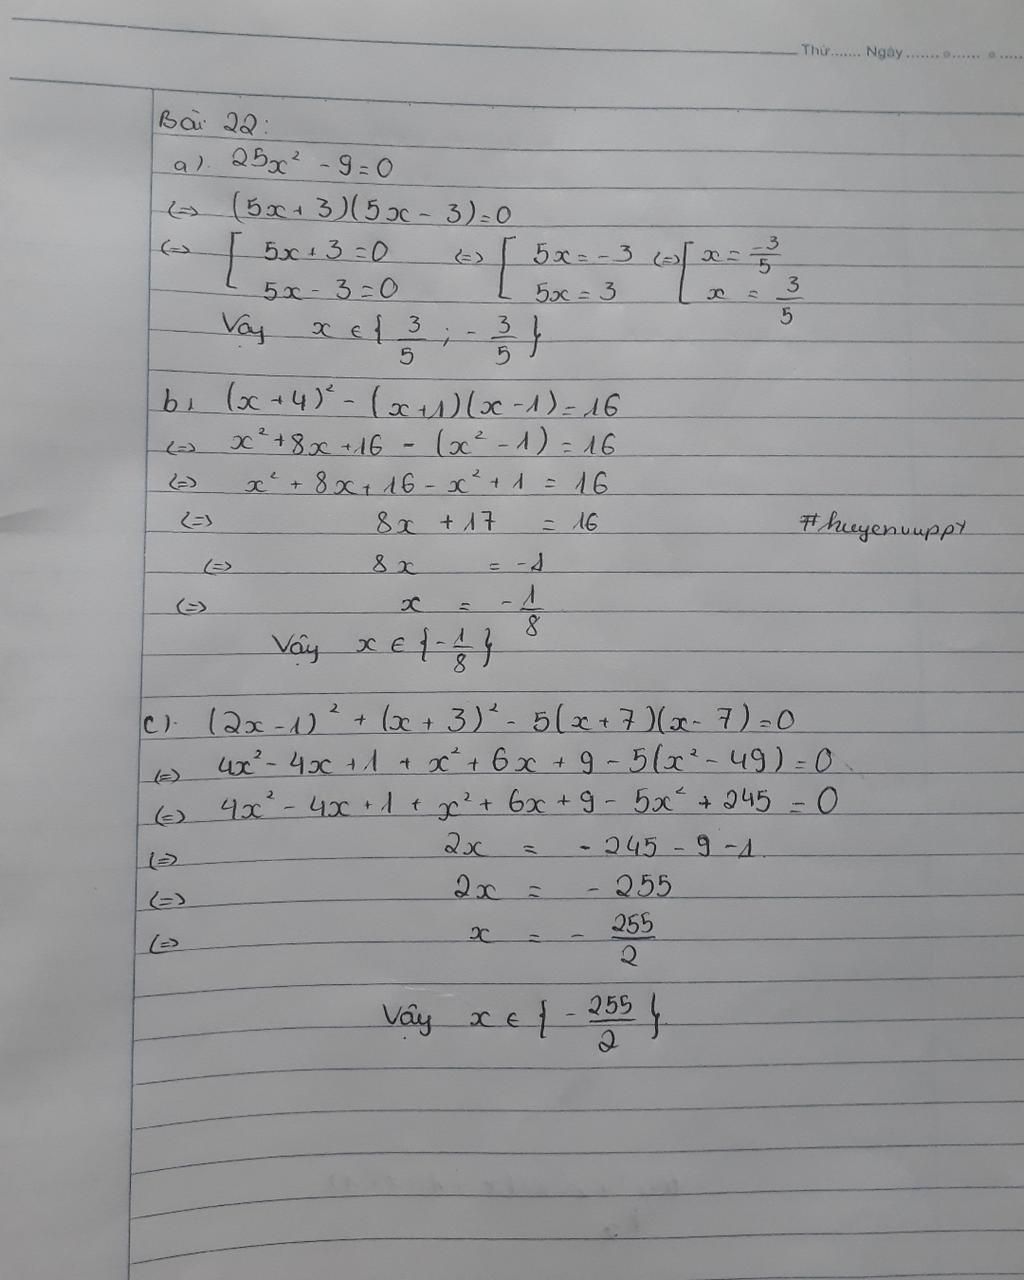 Thứ....... Ngày ....... o...... o .....
Bài 22:
a). 25x² - 9 = 0
<=> (5x + 3)(5x - 3) = 0
<=> [ 5x + 3 = 0 <=> [ 5x = -3 <=> [ x = -3/5
5x - 3 = 0 5x = 3 x = 3/5
Vậy x ∈ { 3/5 ; - 3/5 }
b, (x + 4)² - (x+1)(x - 1) = 16
<=> x² + 8x + 16 - (x² - 1) = 16
<=> x² + 8x + 16 - x² + 1 = 16
<=> 8x + 17 = 16
#huyenvuppy
<=> 8x = -1
<=> x = - 1/8
Vậy x ∈ { - 1/8 }
c). (2x - 1)² + (x + 3)² - 5(x + 7)(x - 7) = 0
<=> 4x² - 4x + 1 + x² + 6x + 9 - 5(x² - 49) = 0
<=> 4x² - 4x + 1 + x² + 6x + 9 - 5x² + 245 = 0
<=> 2x = - 245 - 9 - 1
<=> 2x = - 255
<=> x = - 255/2
Vậy x ∈ { - 255/2 }